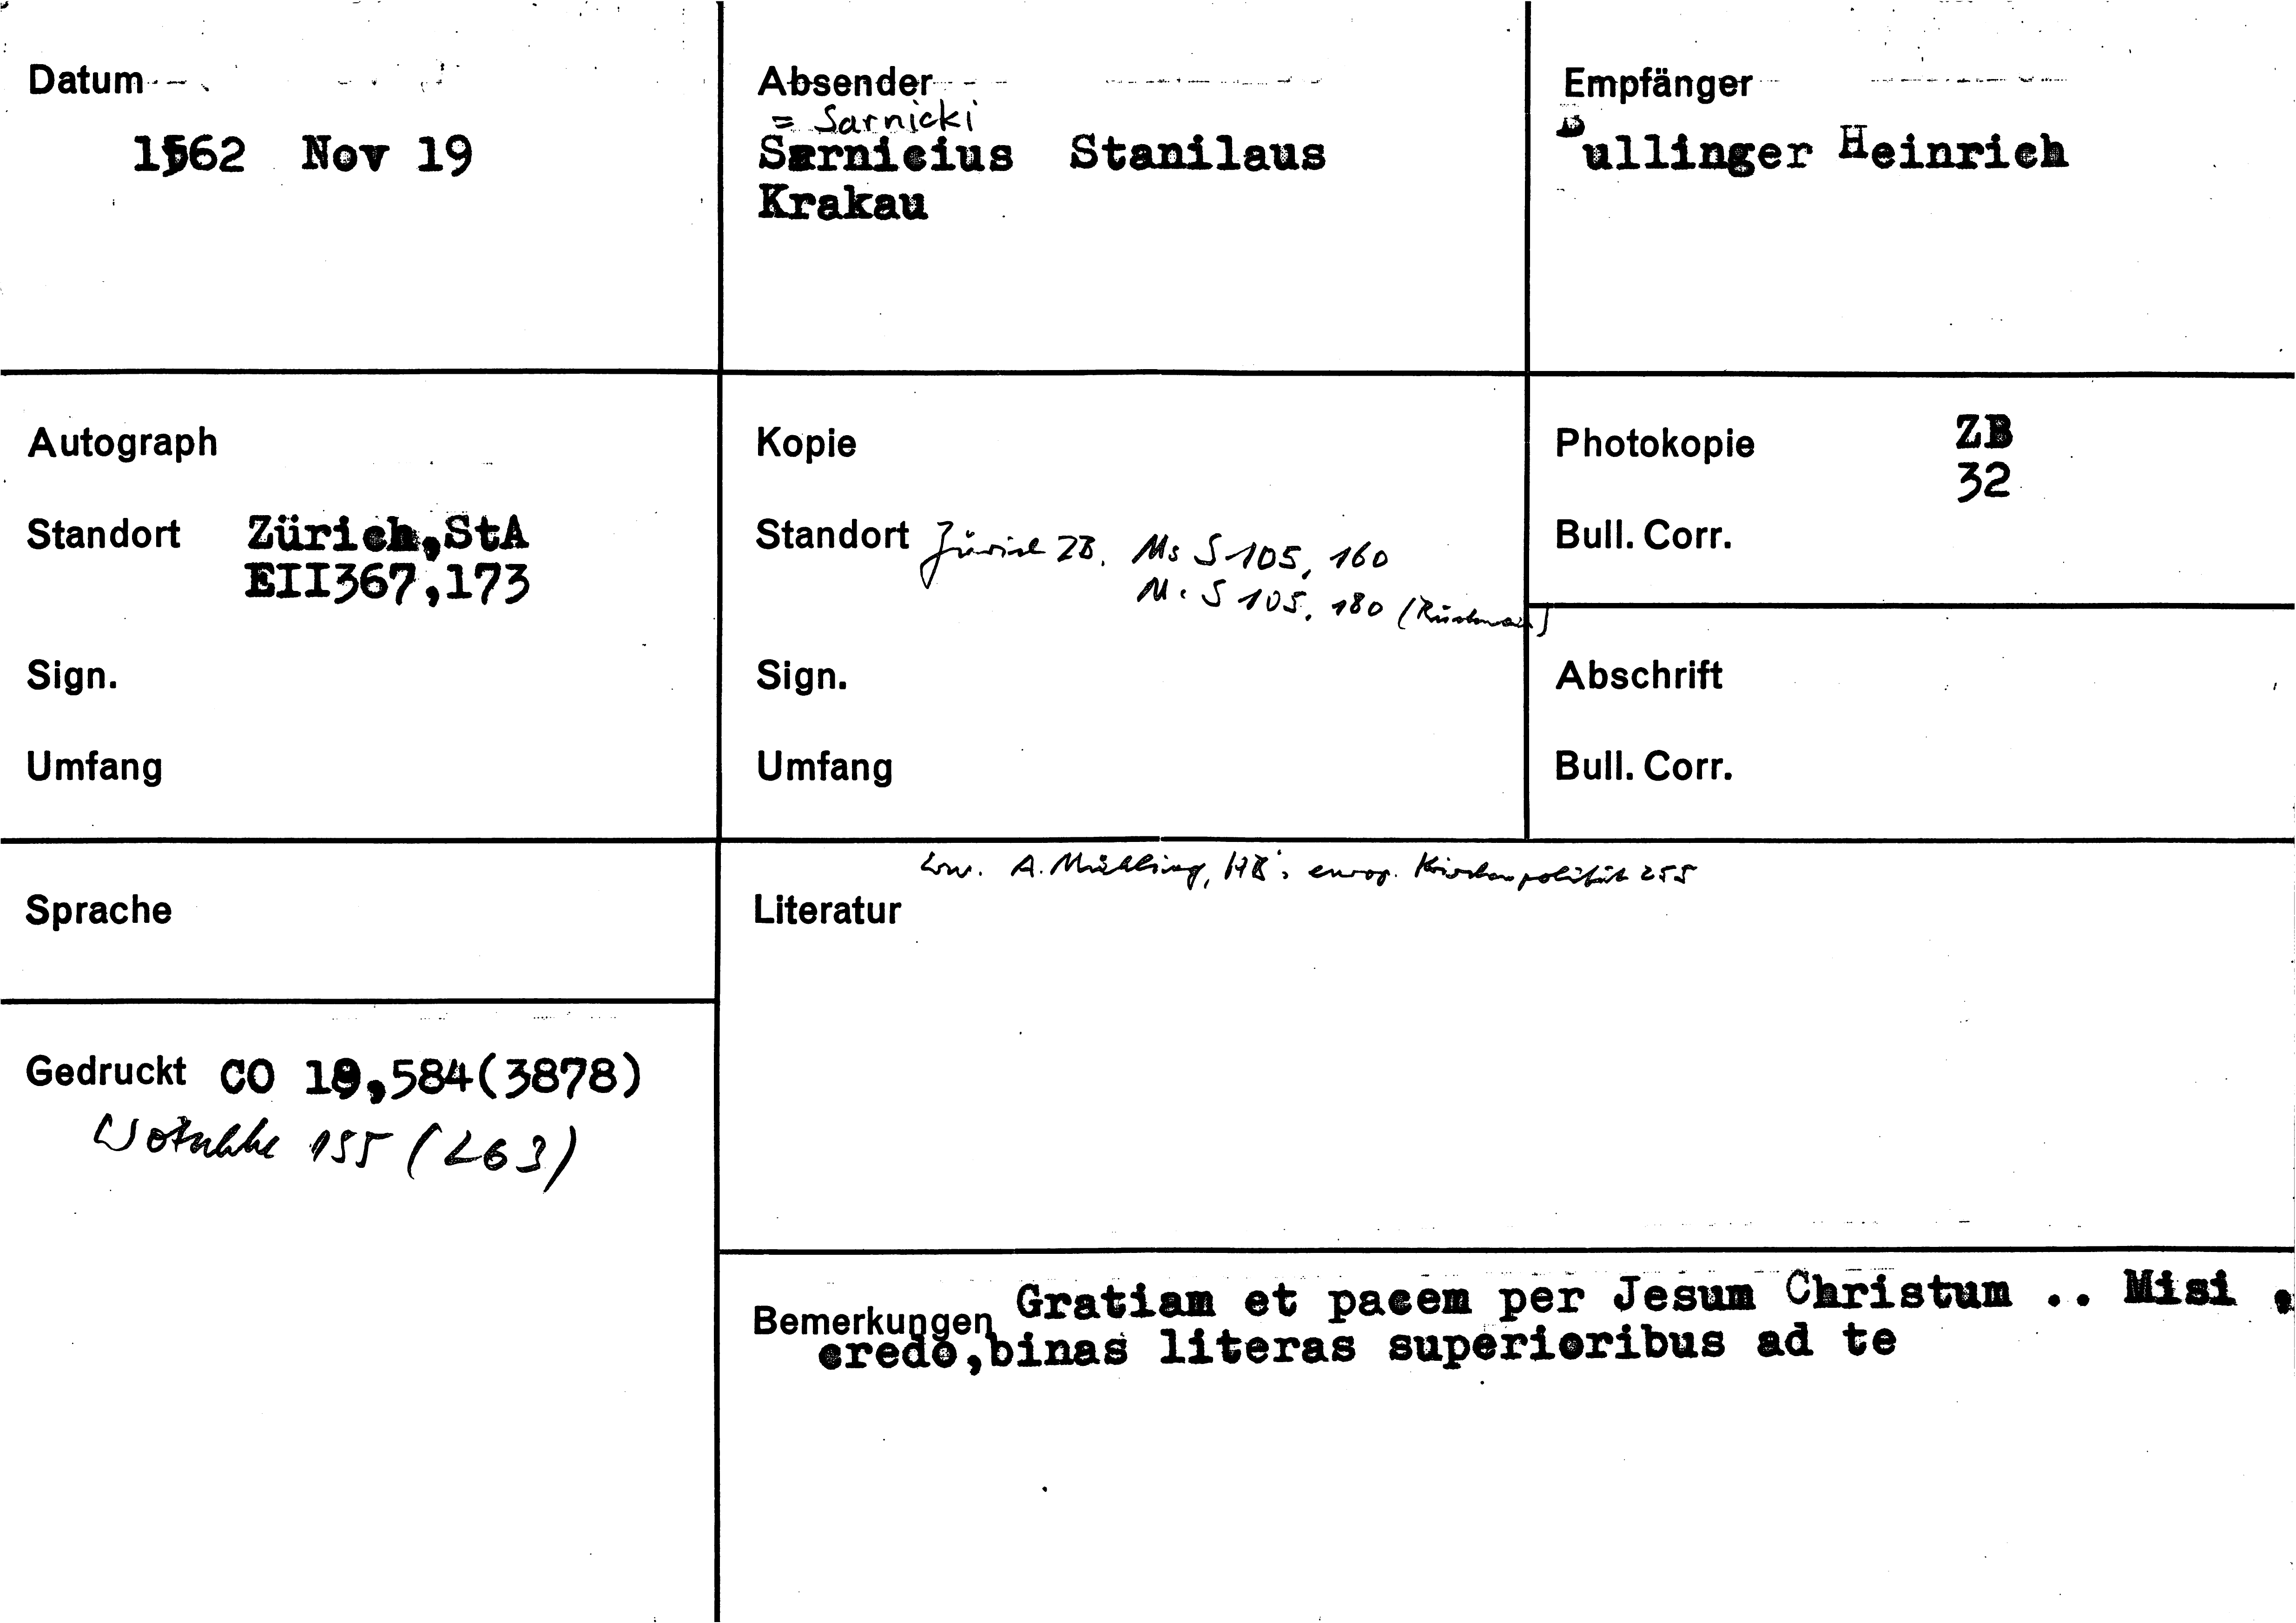 Datum
1562 Nov 19
Absender
= Sarnicki
Sarnicius Stanilaus
Krakau
Empfänger
Bullinger Heinrich
Autograph
Standort Zürich,StA
EII367,173
Sign.
Umfang
Kopie
Standort Zürich ZB. Ms S 105, 160
Ms S 105, 180
Sign.
Umfang
Photokopie ZB
32
Bull. Corr.
Abschrift
Bull. Corr.
Sprache
Erw. A. Mühling, HB's europ. Kirchenpolitik 255
Literatur
Gedruckt CO 19,584(3878)
Wotschke 155 (263)
Bemerkungen Gratiam et pacem per Jesum Christum .. Misi ,
credo,binas literas superioribus ad te